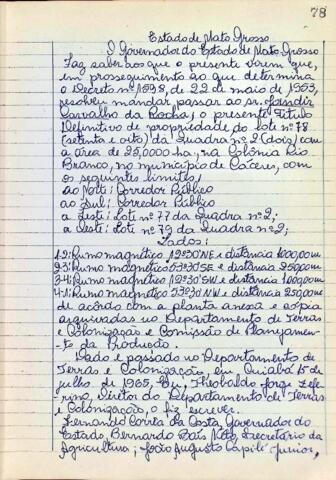 78
Estado de Mato Grosso
O Governador do Estado de Mato Grosso
Faz saber aos que o presente virem que,
em proseguimento ao que determina
o Decreto nº 1598, de 22 de maio de 1953,
resolveu mandar passar ao sr.
Carvalho da Rocha, o presente Titulo
Definitivo de propriedade do lote nº 78
(setenta e oito) da Quadra nº 2 (dois) com
a área de 25,0000 ha, na Colônia Rio
Branco, no municipio de Cáceres, com
os seguintes limites;
ao Norte: Corredor Público
ao Sul: Corredor Público
a Leste: Lote nº 77 da Quadra nº 2;
a Oeste: Lote nº 79 da Quadra nº 2;
Lados:
1-2: Rumo magnético 12º30'NE e distância 1000,00m
2-3: Rumo magnético 53º30'SE e distância 250,00m
3-4: Rumo magnético 12º30'SW e distância 1000,00m
4-1: Rumo magnético 53º30'NW e distância 250,00m
de acôrdo com a planta anexa e cópia
arquivadas no Departamento de Terras
e Colonização e Comissão de Planejamen-
to da Produção.
Dado e passado no Departamento de
Terras e Colonização, em Cuiabá 15 de
julho de 1965, Eu, Theobaldo Jorge Zefe-
rino, Diretor do Departamento de Terras
e Colonização, o fiz escrever.
Fernando Corrêa da Costa, Governador do
Estado, Bernardo Bais Neto, Secretário da
Agricultura; João Augusto Capilé Junior,